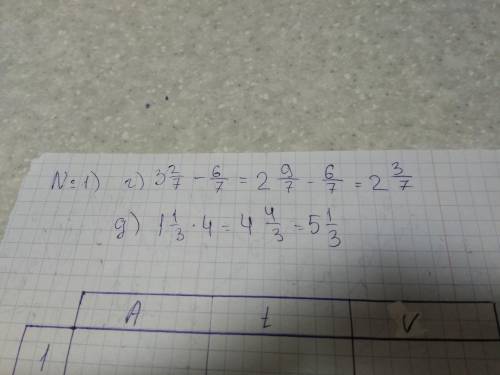 №1) г) 3 2/7 - 6/7 = 2 9/7 - 6/7 = 2 3/7
д) 1 1/3 · 4 = 4 4/3 = 5 1/3
A t V
1